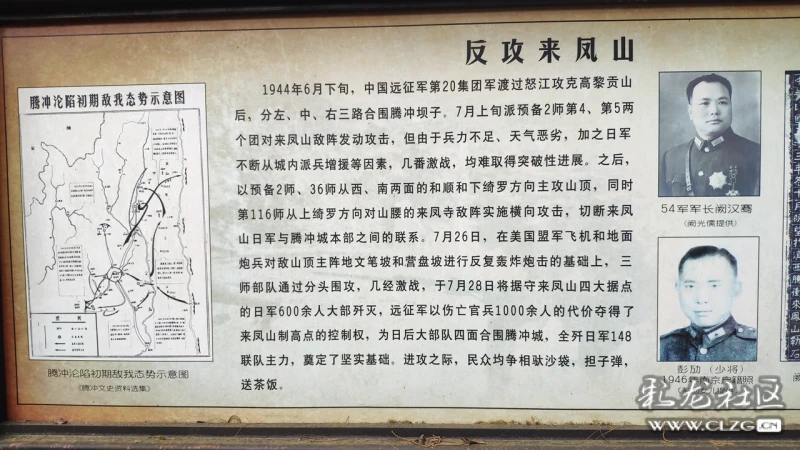 反攻来凤山
腾冲沦陷初期敌我态势示意图
1944年6月下旬，中国远征军第20集团军渡过怒江攻克高黎贡山
后，分左、中、右三路合围腾冲坝子。7月上旬派预备2师第4、第5两
个团对来凤山敌阵发动攻击，但由于兵力不足、天气恶劣，加之日军
不断从城内派兵增援等因素，几番激战，均难取得突破性进展。之后，
以预备2师、36师从西、南两面的和顺和下绮罗方向主攻山顶，同时
第116师从上绮罗方向对山腰的来凤寺敌阵实施横向攻击，切断来凤
山日军与腾冲城本部之间的联系。7月26日，在美国盟军飞机和地面
炮兵对敌山顶主阵地文笔坡和营盘坡进行反复轰炸炮击的基础上，三
师部队通过分头围攻，几经激战，于7月28日将据守来凤山四大据点
的日军600余人大部歼灭，远征军以伤亡官兵1000余人的代价夺得了
来凤山制高点的控制权，为日后大部队四面合围腾冲城，全歼日军148
联队主力，奠定了坚实基础。进攻之际，民众均争相驮沙袋，担子弹，
送茶饭。
腾冲沦陷初期敌我态势示意图
《腾冲文史资料选集》
54军军长阙汉骞
(阙光儒提供)
彭劢（少将）
1946年南京
乳龙社区
WWW.CLZG.CN